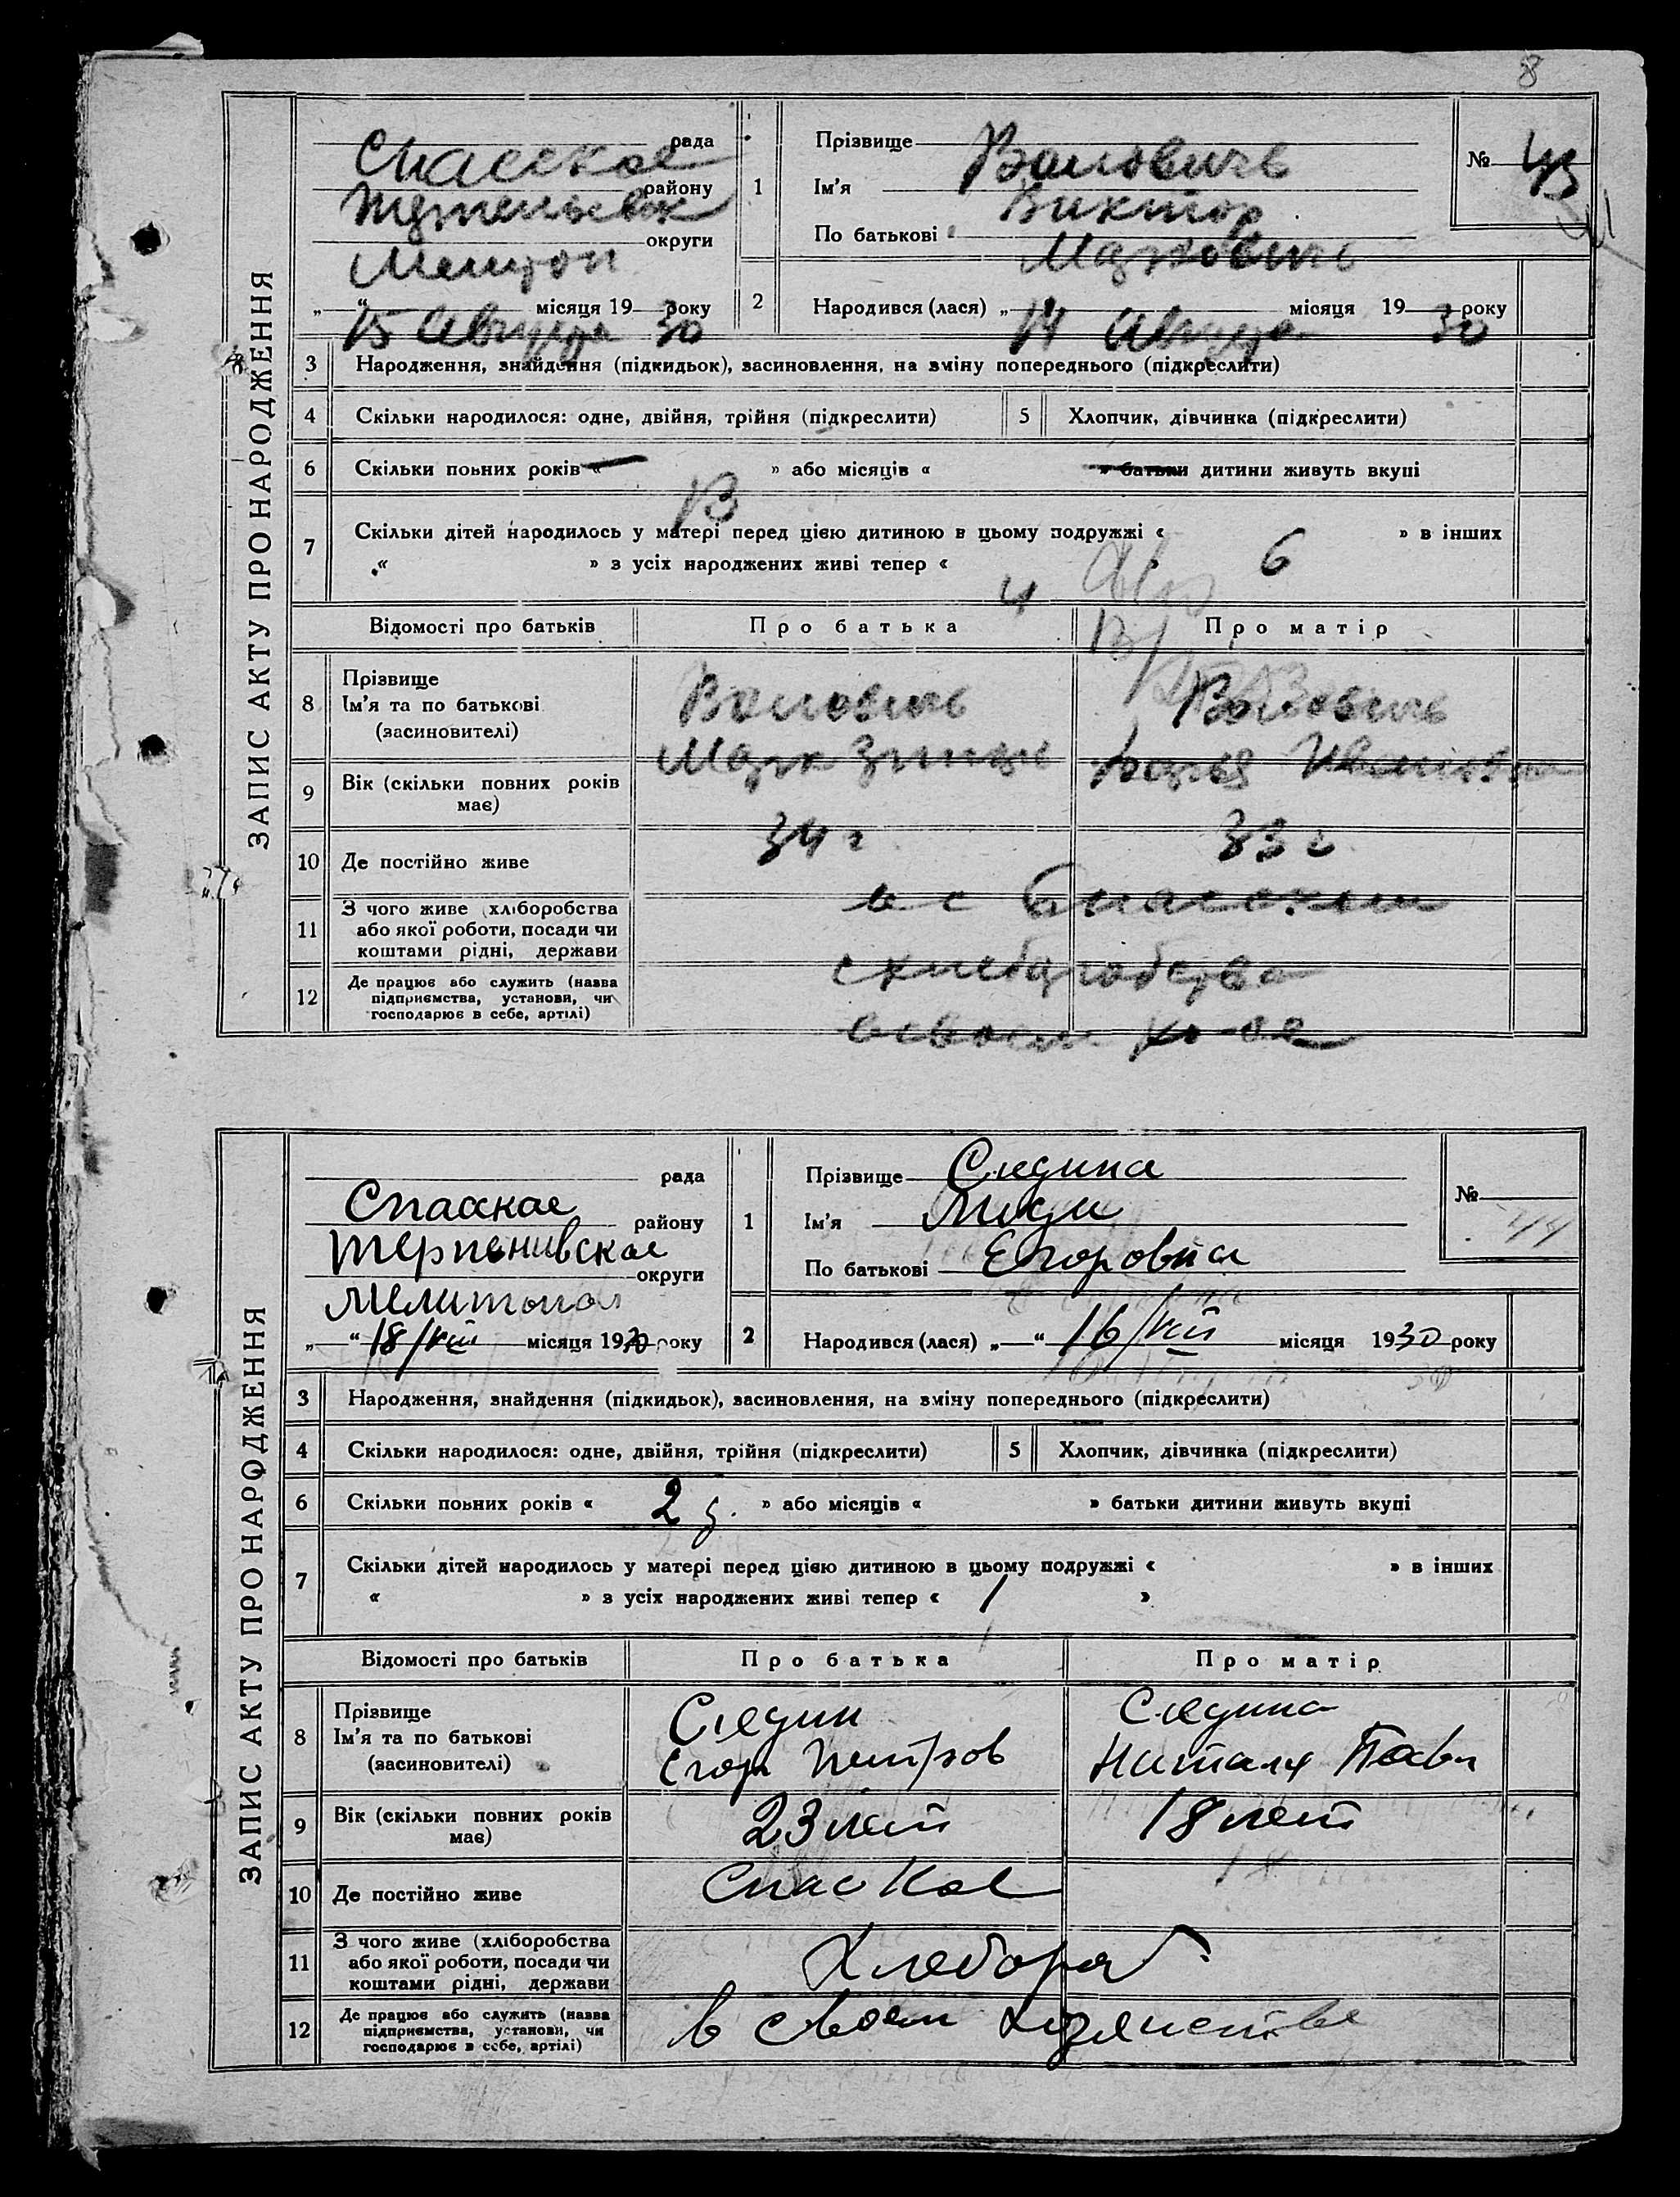 8
ЗАПИС АКТУ ПРО НАРОДЖЕННЯ
рада
Спасское
району
округи
Мелитоп
„ “ місяця 19 року
15 Августа 30
1
Прізвище
Воловичь
Ім’я
Виктор
По батькові
Маркович
№ 43
2
Народився (лася) „ “ місяця 19 року
14 Августа 30
3 Народження, знайдення (підкидьок), засиновлення, на зміну попереднього (підкреслити)
4 Скільки народилося: одне, двійня, трійня (підкреслити) 5 Хлопчик, дівчинка (підкреслити)
6 Скільки повних років « » або місяців « » батьки дитини живуть вкупі
13
7 Скільки дітей народилось у матері перед цією дитиною в цьому подружжі « 6 » в інших
« » з усіх народжених живі тепер « »
4
Відомості про батьків Про батька Про матір
8 Прізвище
Ім’я та по батькові
(засиновителі)
Воловичь Воловичь
Марк Ивановна
9 Вік (скільки повних років має)
34 г 33 г
10 Де постійно живе
в с Спасском
11 З чого живе (хліборобства або якої роботи, посади чи коштами рідні, держави
с хлеборобства
12 Де працює або служить (назва підприємства, установи, чи господарює в себе, артілі)
в своем хо-ве
ЗАПИС АКТУ ПРО НАРОДЖЕННЯ
рада
Спасское
району
Терпенивское
округи
Мелитопол
„ “ 18/VIII місяця 1930 року
1
Прізвище Следина
Ім’я
По батькові Егоровна
№ 44
2 Народився (лася) „ “ 16/VIII місяця 1930 року
3 Народження, знайдення (підкидьок), засиновлення, на зміну попереднього (підкреслити)
4 Скільки народилося: одне, двійня, трійня (підкреслити) 5 Хлопчик, дівчинка (підкреслити)
6 Скільки повних років « 2 г. » або місяців « » батьки дитини живуть вкупі
7 Скільки дітей народилось у матері перед цією дитиною в цьому подружжі « » в інших
« » з усіх народжених живі тепер « 1 »
Відомості про батьків Про батька Про матір
8 Прізвище
Ім’я та по батькові
(засиновителі)
Следин Следина
Егор Петров Наталя Павл
9 Вік (скільки повних років має)
23 лет 18 лет
10 Де постійно живе
Спаское
11 З чого живе (хліборобства або якої роботи, посади чи коштами рідні, держави
Хлебороб
12 Де працює або служить (назва підприємства, установи, чи господарює в себе, артілі)
в своем хозянстве